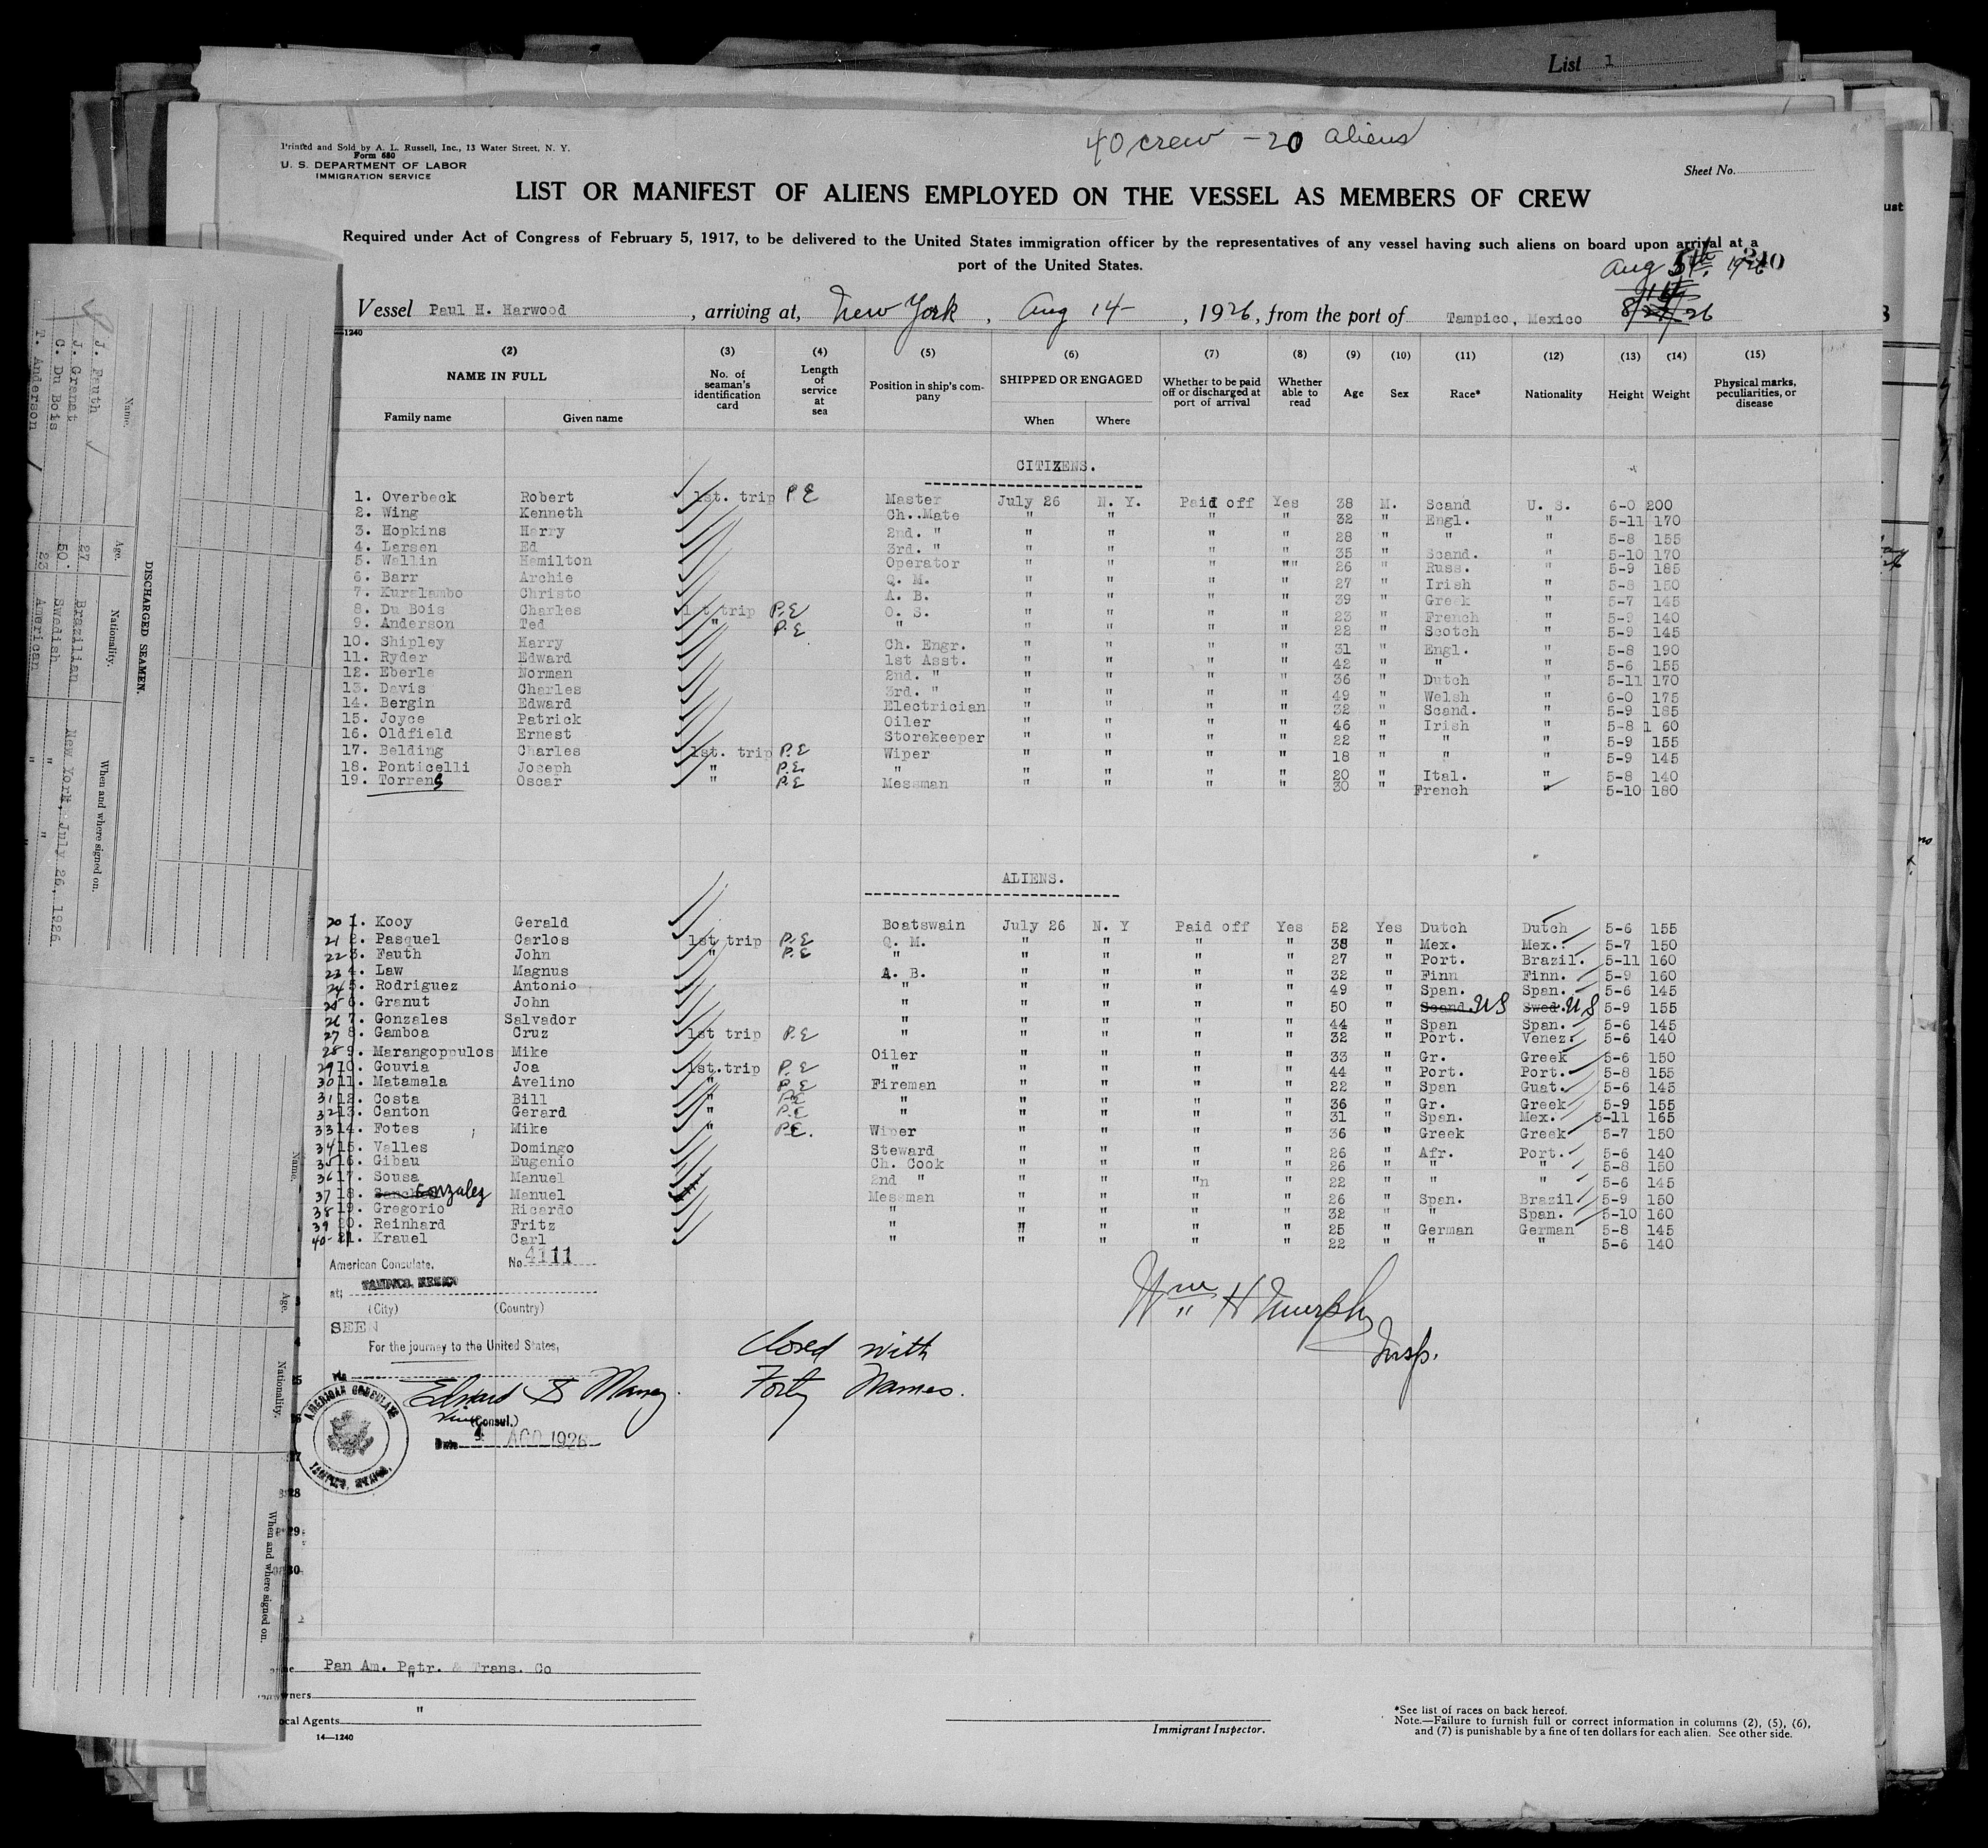 List 1
40 crew - 20 aliens
Printed and Sold by A. L. Russell, Inc., 13 Water Street, N. Y.
Form 680
U. S. DEPARTMENT OF LABOR
IMMIGRATION SERVICE
Sheet No.
LIST OR MANIFEST OF ALIENS EMPLOYED ON THE VESSEL AS MEMBERS OF CREW
Required under Act of Congress of February 5, 1917, to be delivered to the United States immigration officer by the representatives of any vessel having such aliens on board upon arrival at a
port of the United States.
Aug 5th, 1926
240
Vessel Paul H. Harwood, arriving at, New York, Aug 14, 1926, from the port of Tampico, Mexico
1240
(2) (3) (4) (5) (6) (7) (8) (9) (10) (11) (12) (13) (14) (15)
NAME IN FULL Family name Given name
No. of seaman's identification card
Length of service at sea
Position in ship's company
SHIPPED OR ENGAGED When Where
Whether to be paid off or discharged at port of arrival
Whether able to read
Age Sex Race* Nationality Height Weight
Physical marks, peculiarities, or disease
CITIZENS.
1. Overbeck Robert 1st. trip P.E Master July 26 N. Y. Paid off Yes 38 M. Scand U. S. 6-0 200
2. Wing Kenneth Ch..Mate " " " " 32 " Engl. " 5-11 170
3. Hopkins Harry 2nd. " " " " " 28 " " " 5-8 155
4. Larsen Ed 3rd. " " " " " 35 " Scand. " 5-10 170
5. Wallin Hamilton Operator " " " "" 26 " Russ. " 5-9 185
6. Barr Archie Q. M. " " " " 27 " Irish " 5-8 150
7. Kuralambo Christo A. B. " " " " 39 " Greek " 5-7 145
8. Du Bois Charles 1st trip P.E O. S. " " " " 23 " French " 5-9 140
9. Anderson Ted " P.E " " " " " 22 " Scotch " 5-9 145
10. Shipley Harry Ch. Engr. " " " " 31 " Engl. " 5-8 190
11. Ryder Edward 1st Asst. " " " " 42 " " " 5-6 155
12. Eberle Norman 2nd. " " " " " 36 " Dutch " 5-11 170
13. Davis Charles 3rd. " " " " " 49 " Welsh " 6-0 175
14. Bergin Edward Electrician " " " " 32 " Scand. " 5-9 185
15. Joyce Patrick Oiler " " " " 46 " Irish " 5-8 1 60
16. Oldfield Ernest Storekeeper " " " " 22 " " " 5-9 155
17. Belding Charles 1st. trip P.E Wiper " " " " 18 " " " 5-9 145
18. Ponticelli Joseph " P.E " " " " " 20 " Ital. " 5-8 140
19. Torrens Oscar " P.E Messman " " " " 30 " French " 5-10 180
ALIENS.
20 1. Kooy Gerald Boatswain July 26 N. Y Paid off Yes 52 Yes Dutch Dutch 5-6 155
21 2. Pasquel Carlos 1st trip P.E Q. M. " " " " 38 " Mex. Mex. 5-7 150
22 3. Fauth John " P.E " " " " " 27 " Port. Brazil. 5-11 160
23 4. Law Magnus A. B. " " " " 32 " Finn Finn. 5-9 160
24 5. Rodriguez Antonio " " " " " 49 " Span. Span. 5-6 145
25 6. Granut John " " " " " 50 " Scand. US Swed. US 5-9 155
26 7. Gonzales Salvador " " " " " 44 " Span Span. 5-6 145
27 8. Gamboa Cruz 1st trip P.E " " " " " 32 " Port. Venez. 5-6 140
28 9. Marangoppulos Mike Oiler " " " " 33 " Gr. Greek 5-6 150
29 10. Gouvia Joa 1st.trip P.E " " " " " 44 " Port. Port. 5-8 155
30 11. Matamala Avelino " P.E Fireman " " " " 22 " Span Guat. 5-6 145
31 12. Costa Bill " P.E " " " " " 36 " Gr. Greek 5-9 155
32 13. Canton Gerard " P.E " " " " " 31 " Span. Mex. 5-11 165
33 14. Fotes Mike " P.E. Wiper " " " " 36 " Greek Greek 5-7 150
34 15. Valles Domingo Steward " " " " 26 " Afr. Port. 5-6 140
35 16. Gibau Eugenio Ch. Cook " " " " 26 " " " 5-8 150
36 17. Sousa Manuel 2nd " " " "n " 22 " " " 5-6 145
37 18. Gonzalez Manuel Messman " " " " 26 " Span. Brazil 5-9 150
38 19. Gregorio Ricardo " " " " " 32 " " Span. 5-10 160
39 20. Reinhard Fritz " " " " " 25 " German German 5-8 145
40 21. Krauel Carl " " " " " 22 " " " 5-6 140
American Consulate, No 4111
at; TAMPICO, MEXICO
(City) (Country)
SEEN
For the journey to the United States,
via
(Consul.)
Date AGO 1926
AMERICAN CONSULATE
TAMPICO, MEXICO.
closed with
Forty Names.
Wm H Murphy
Insp.
28
29
30
Pan Am. Petr. & Trans. Co
"
wners
ocal Agents "
14—1240
Immigrant Inspector.
*See list of races on back hereof.
Note.—Failure to furnish full or correct information in columns (2), (5), (6),
and (7) is punishable by a fine of ten dollars for each alien. See other side.
DISCHARGED SEAMEN.
Name. Age. Nationality. When and where signed on.
J. Fauth 27 Brazilian New York, July 26, 1926
J. Granat 50 Swedish " "
C. Du Bois 23 American " "
T. Anderson
Name. Age. Nationality. When and where signed on.